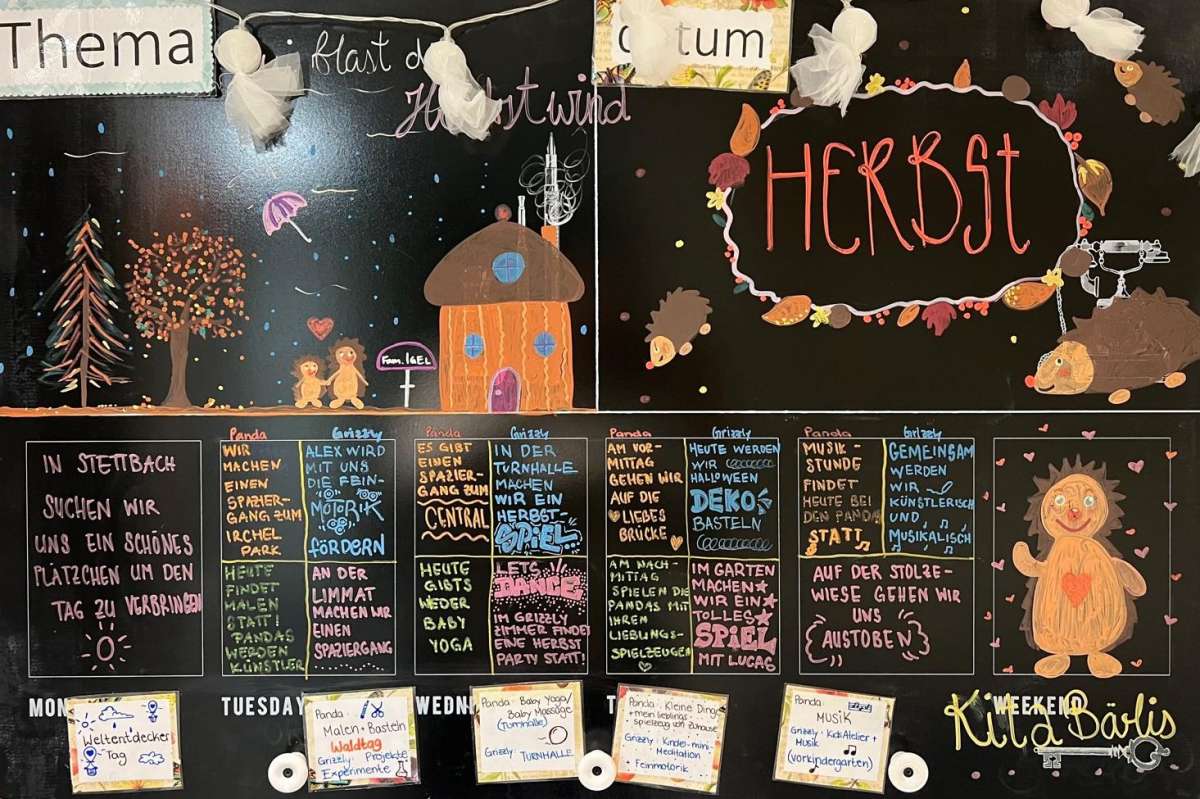 Thema
blast d
Herbstwind
tum
HERBST
Fam. IGEL
IN STETTBACH
SUCHEN WIR
UNS EIN SCHÖNES
PLÄTZCHEN UM DEN
TAG ZU VERBRINGEN
Panda
WIR
MACHEN
EINEN
SPAZIER-
GANG ZUM
IRCHEL
PARK
Grizzly
ALEX WIRD
MIT UNS
DIE FEIN-
MOTORIK
FÖRDERN
HEUTE
FINDET
MALEN
STATT!
PANDAS
WERDEN
KÜNSTLER
AN DER
LIMMAT
MACHEN WIR
EINEN
SPAZIERGANG
Panda
ES GIBT
EINEN
SPAZIER-
GANG ZUM
CENTRAL
Grizzly
IN DER
TURNHALLE
MACHEN
WIR EIN
HERBST-
SPIEL
HEUTE
GIBTS
WEDER
BABY
YOGA
LETS
DANCE
IM GRIZZLY
ZIMMER FINDET
EINE HERBST
PARTY STATT!
Panda
AM VOR-
MITTAG
GEHEN WIR
AUF DIE
LIEBES
BRÜCKE
Grizzly
HEUTE WERDEN
WIR
HALLOWEEN
DEKO
BASTELN
AM NACH-
MITTAG
SPIELEN DIE
PANDAS MIT
IHREM
LIEBLINGS-
SPIELZEUGEN
IM GARTEN
MACHEN
WIR EIN
TOLLES
SPIEL
MIT LUCAS
Panda
MUSIK-
STUNDE
FINDET
HEUTE BEI
DEN PANDAS
STATT
Grizzly
GEMEINSAM
WERDEN
WIR
KÜNSTLERISCH
UND
MUSIKALISCH
AUF DER STOLZE-
WIESE GEHEN WIR
UNS
AUSTOBEN
MON
TUESDAY
WEDN
T
WEEKEND
Weltentdecker
Tag
Panda:
Malen + Basteln
Waldtag
Grizzly: Projekte
Experimente
Panda: Baby Yoga/
Baby Massage
(Turnhalle)
Grizzly: TURNHALLE
Panda: Kleine Ding
+ mein lieblings-
spielzeug von Zuhause
Grizzly: Kinder-mini-
Meditation
Feinmotorik
Panda:
MUSIK
Grizzly: KickAtelier +
Musik
(Vorkindergarten)
Kita Bärlis